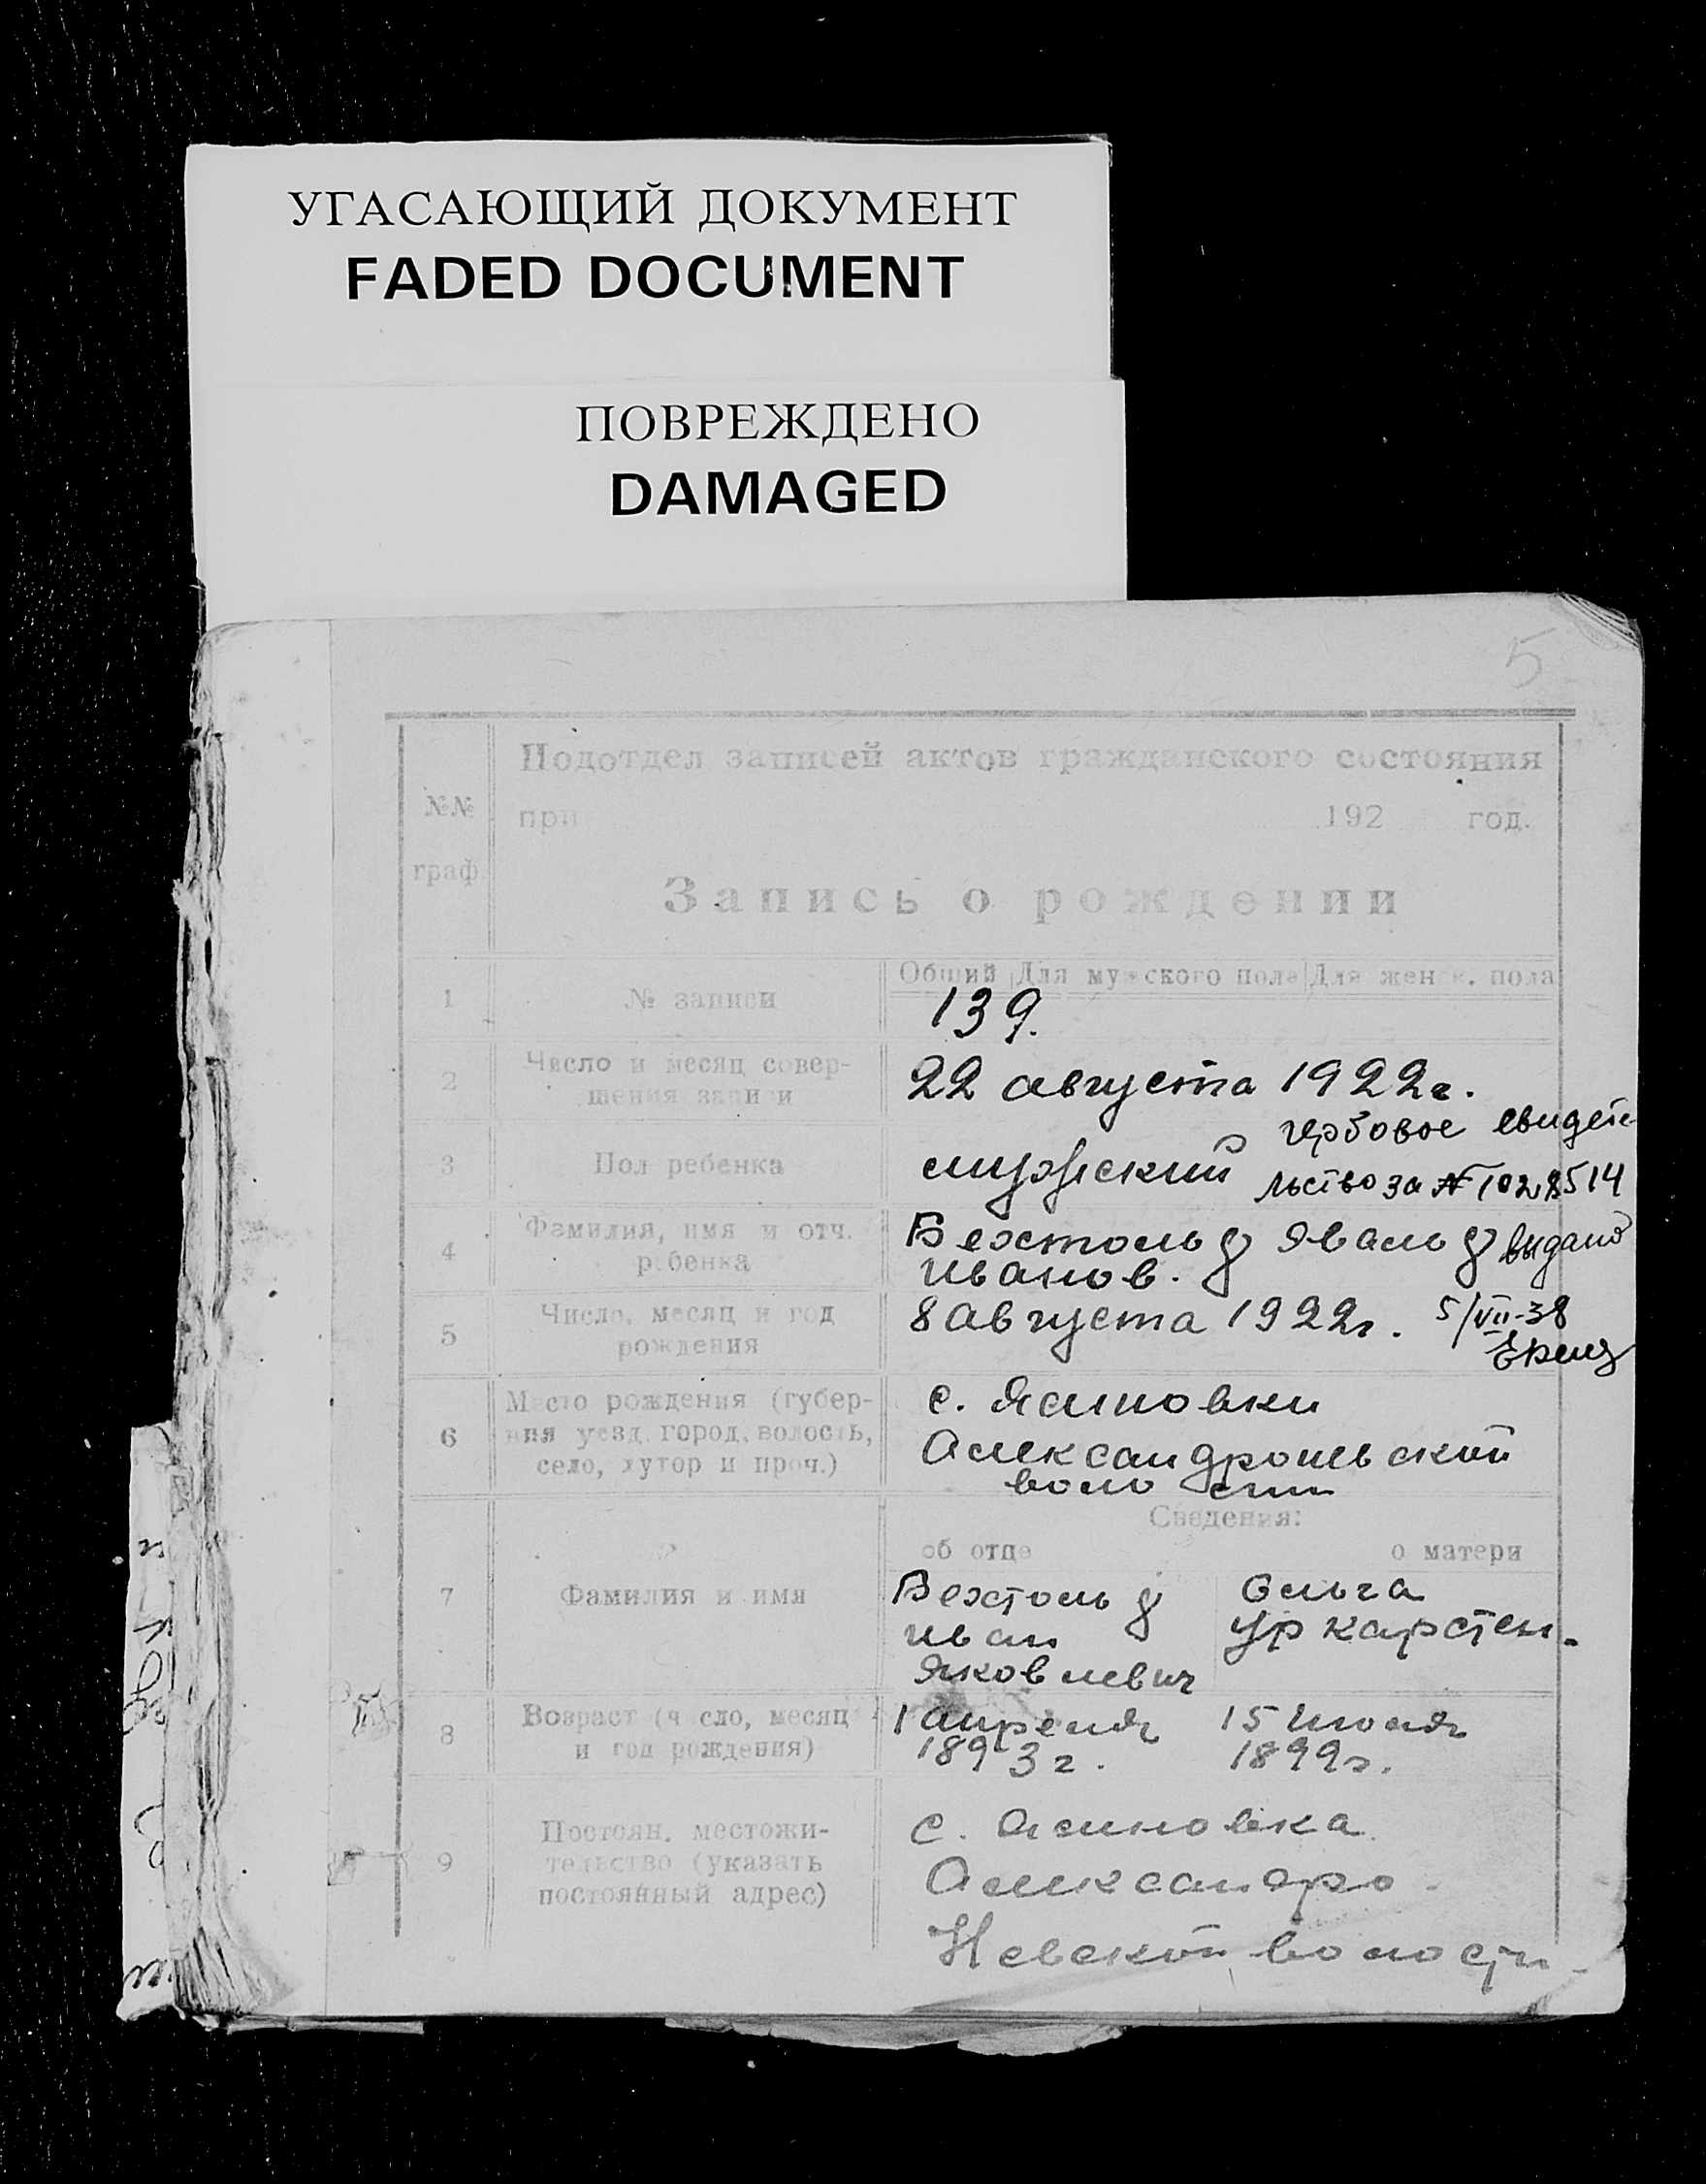 УГАСАЮЩИЙ ДОКУМЕНТ
FADED DOCUMENT
ПОВРЕЖДЕНО
DAMAGED
5
№№ граф
Подотдел записей актов гражданского состояния
при 192 год.
Запись о рождении
Общий Для мужского пола Для женск. пола
1 № записи 139.
2 Число и месяц совер-
шения записи 22 августа 1922г.
гербовое свидете-
3 Пол ребенка мужской
льство за № 1028514
4 Фамилия, имя и отч.
ребенка
Бехтольд Эвальд выдано
Иванов.
5 Число, месяц и год
рождения
8 августа 1922г. 5/VII-38
6 Место рождения (губер-
ния уезд, город, волость,
село, хутор и проч.)
с. Ясиновки
Александроневской
волости
Сведения:
об отце о матери
7 Фамилия и имя
Бехтольд Ольга
Иван ур Карстен.
Яковлевич
8 Возраст (число, месяц
и год рождения)
1 апреля 15 июля
1893г. 1899г.
9 Постоян. местожи-
тельство (указать
постоянный адрес)
с. Ясиновка
Александро-
Невской волости